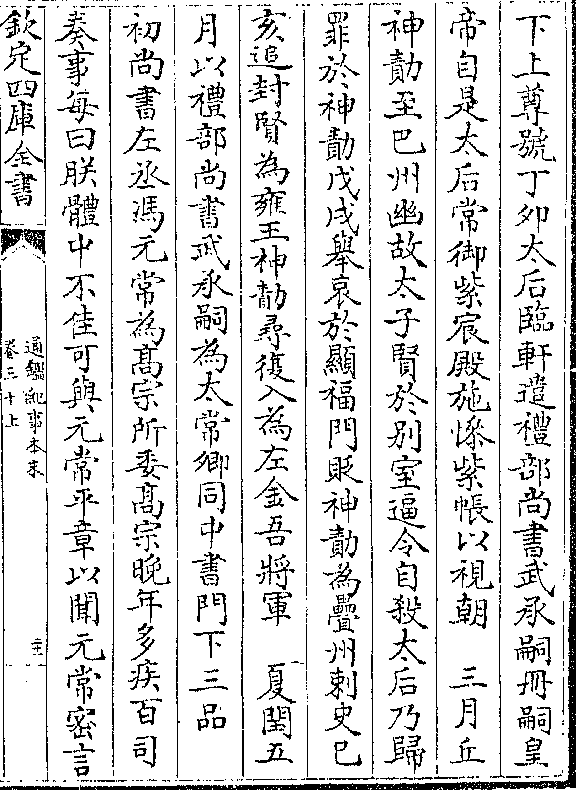 下上尊號丁卯太后臨軒遣禮部尚書武承嗣冊嗣皇
帝自是太后常御紫宸殿施慘紫帳以視朝　三月丘
神勣至巴州幽故太子賢於別室逼令自殺太后乃歸
罪於神勣戊戌舉哀於顯福門貶神勣為疊州刺史已
亥追封賢為雍王神勣尋復入為左金吾將軍　夏閏五
月以禮部尚書武承嗣為太常卿同中書門下三品
初尚書左丞馮元常為高宗所委高宗晚年多疾百司
奏事每曰朕體中不佳可與元常平章以聞元常密言
欽定四庫全書
通鑑紀事本末
卷三十上